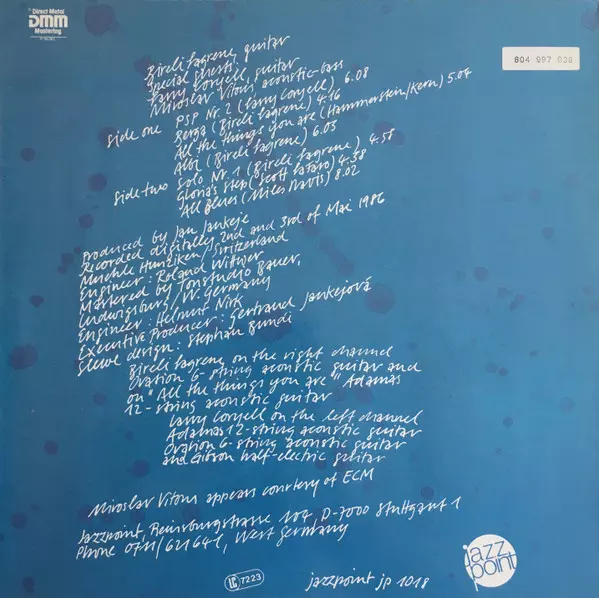 Direct Metal
DMM
Mastering
804 997 020
Bireli Lagrene, guitar
Special Guests:
Larry Coryell, guitar
Miroslav Vitous acoustic-bass
side one
PSP Nr. 2 (Larry Coryell) 6.08
Berga (Bireli Lagrene) 4.16
All the things you are (Hammerstein/Kern) 5.04
Albi (Bireli Lagrene) 6.05
side two
Solo Nr. 1 (Bireli Lagrene) 4.58
Gloria's step (Scott Lafaro) 4.38
All Blues (Miles Davis) 8.02
Produced by Jan Jankeje
Recorded digitally, 2nd and 3rd of Mai 1986
Muehle Hunziken/Switzerland
Engineer: Roland Wittwer
Mastered by Tonstudio Bauer,
Ludwigsburg/W. Germany
Engineer: Helmut Nirk
Executive Producer: Gertraud Jankejová
Sleeve design: Stephan Bundi
Bireli Lagrene on the right channel
Ovation 6-string acoustic guitar and
on "All the things you are" Adamas
12-string acoustic guitar
Larry Coryell on the left channel
Adamas 12-string acoustic guitar
Ovation 6-string acoustic guitar
and Gibson half-electric guitar
Miroslav Vitous appears courtesy of ECM
Jazzpoint, Reinsburgstrasse 104, D-7000 Stuttgart 1
Phone 0711/621641, West Germany
LC 7223
jazzpoint jp 1018
jazz
point